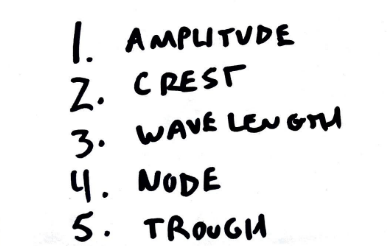 1. AMPLITUDE
2. CREST
3. WAVELENGTH
4. NODE
5. TROUGH